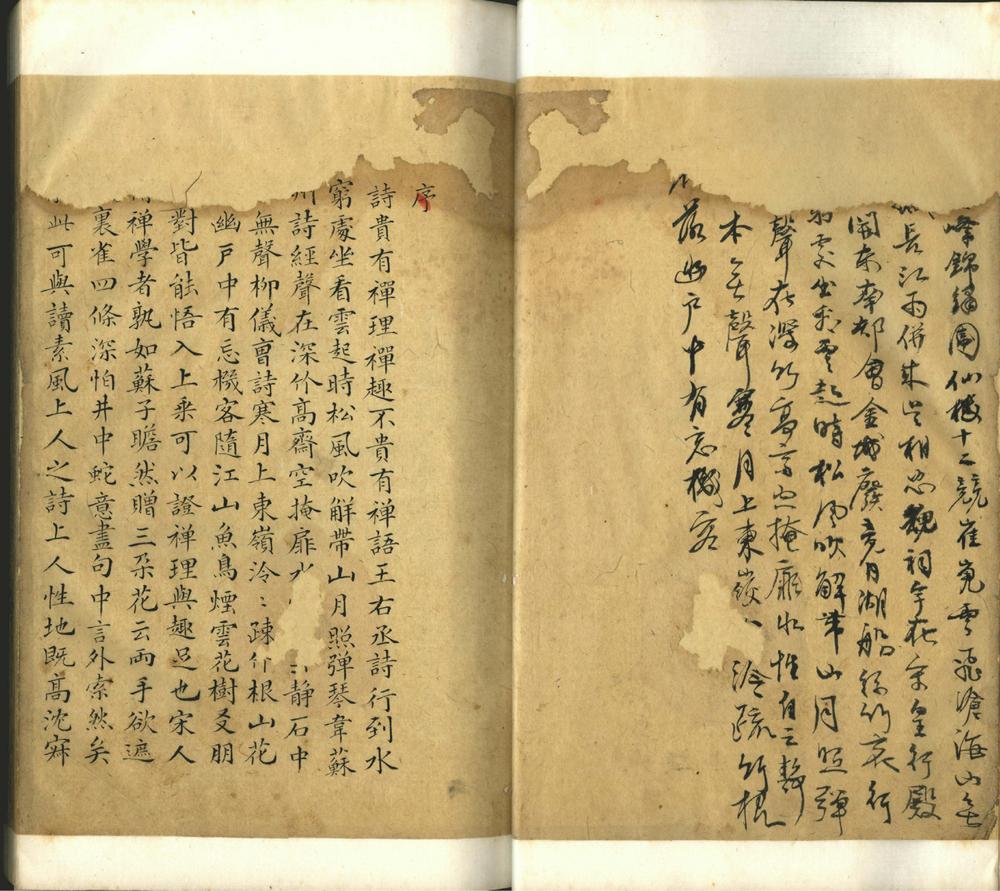 峰錦繡圍仙樓十二競崔嵬雲飛滄海山
長江雨併來 相 魏祠 行殿
開東南都會金城廢 月湖船 竹哀行
處坐看雲起時松風吹解帶山月照彈
聲在深竹高齋空掩扉水性自云靜
本無聲寒月上東嶺 泠疏竹根
花幽戶中有忘機客
序
詩貴有禪理禪趣不貴有禅語王右丞詩行到水
窮處坐看雲起時松風吹解帶山月照弹琴韋蘇
州詩經聲在深竹高齋空掩扉水 靜石中
無聲柳儀曹詩寒月上東嶺泠〻疎竹根山花
幽戶中有忘機客隨江山魚鳥煙雲花樹爻朋
對皆能悟入上乘可以證禅理與趣足也宋人
禅學者孰如蘇子瞻然贈三朶花云兩手欲遮
裏雀四條深怕井中蛇意盡句中言外索然矣
此可與讀素風上人之詩上人性地既高沈寂